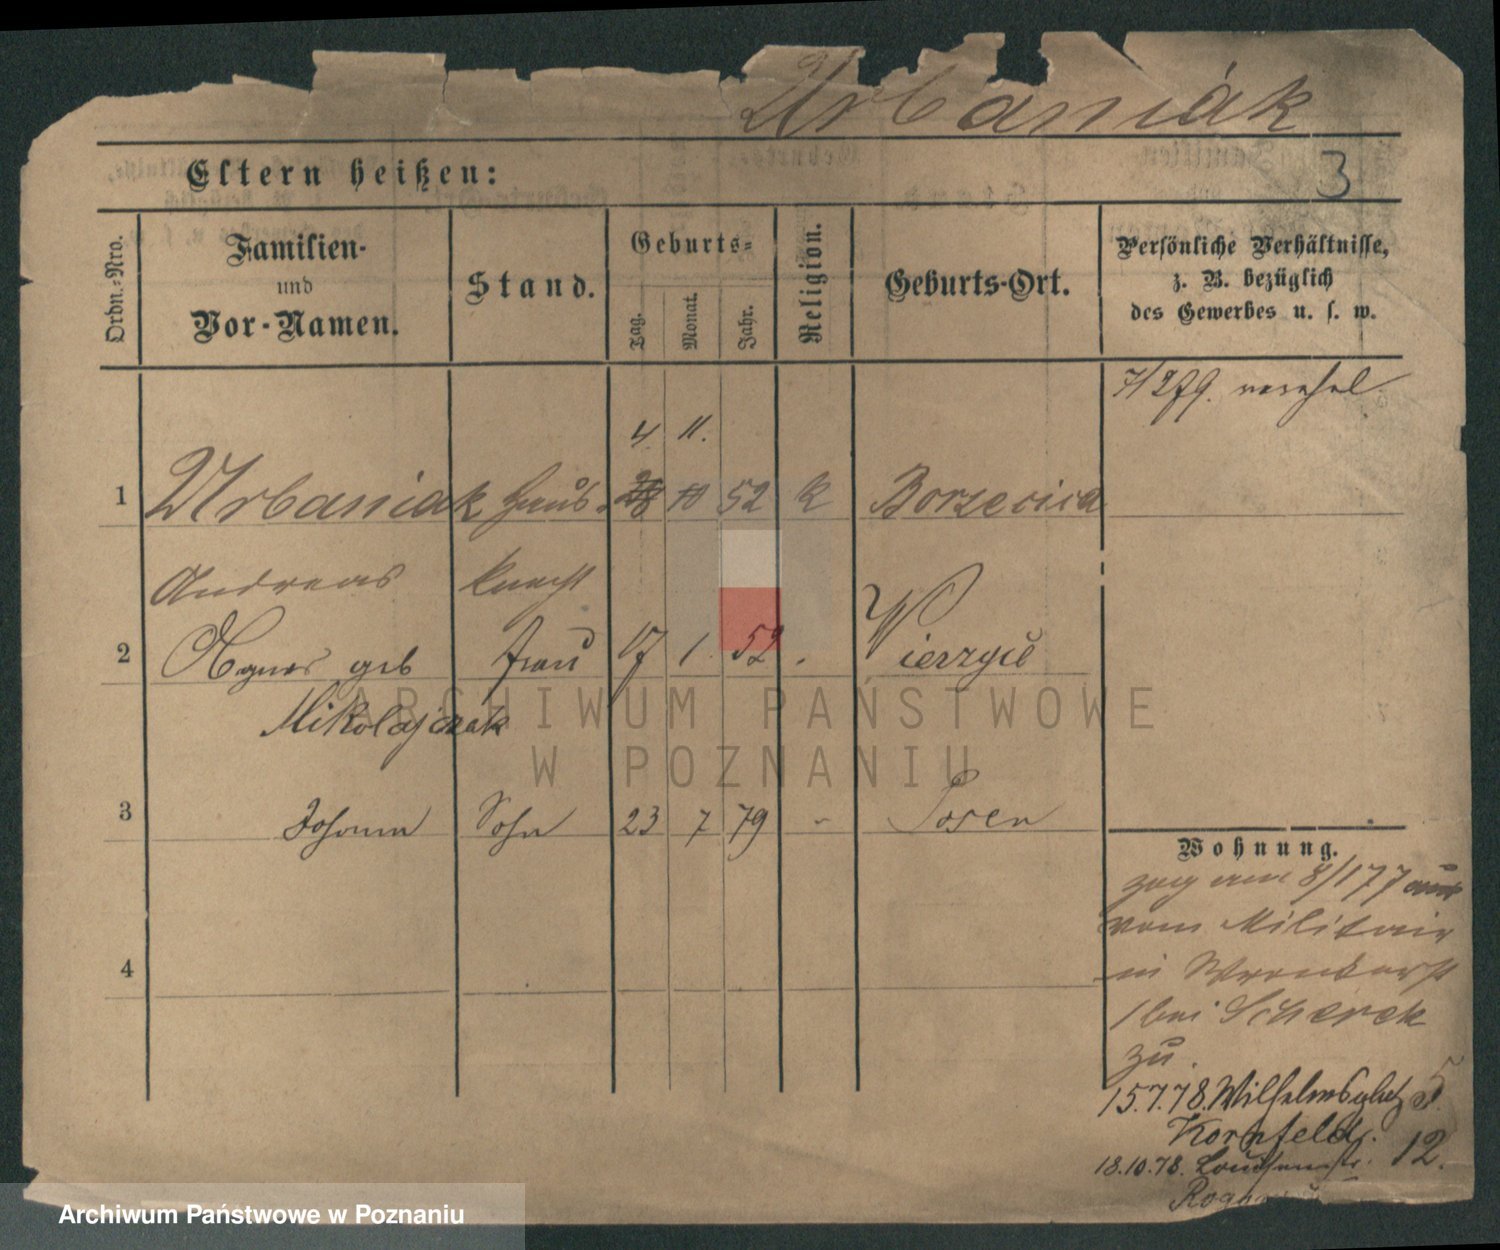 Urbaniak
Eltern heißen:
3
Ordn.-Nro.
Familien-
und
Vor-Namen.
Stand.
Geburts-
Tag.
Monat.
Jahr.
Religion.
Geburts-Ort.
Persönliche Verhältnisse,
z. B. bezüglich
des Gewerbes u. s. w.
7/2 79.
4. 11.
1 Urbaniak Haus- 28 10 52 k Borzecica
Andreas knecht
2 Agnes geb Frau 17 1. 52 . Wierzyce
Mikolajczak
3 Johann Sohn 23 7 79 - Posen
4
Wohnung.
zog am 8/1 77
vom Militair
in
bei Scherek
zu.
15.7.78. Wilhelmsplatz 5
Kornfeld.
18.10.78. Louisenstr. 12.
ARCHIWUM PAŃSTWOWE
W POZNANIU
Archiwum Państwowe w Poznaniu